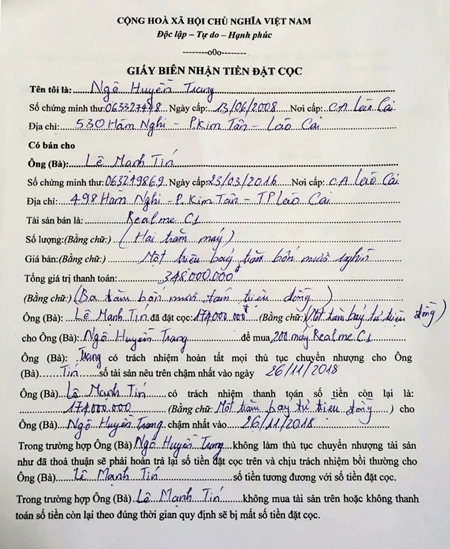 CỘNG HOÀ XÃ HỘI CHỦ NGHĨA VIỆT NAM
Độc lập – Tự do – Hạnh phúc
--------o0o--------
GIẤY BIÊN NHẬN TIỀN ĐẶT CỌC
Tên tôi là: Ngô Huyền Trang
Số chứng minh thư: 063327478 Ngày cấp: 13/06/2008 Nơi cấp: C.A Lào Cai
Địa chỉ: 530 Hàm Nghi - P. Kim Tân - Lào Cai
Có bán cho
Ông (Bà): Lê Mạnh Tín
Số chứng minh thư: 063219869 Ngày cấp: 23/03/2016 Nơi cấp: C.A Lào Cai
Địa chỉ: 498 Hàm Nghi - P. Kim Tân - TP Lào Cai
Tài sản bán là: Realme C1
Số lượng: (Bằng chữ:) (Hai trăm máy)
Giá bán: (Bằng chữ:) Một triệu bảy trăm bốn mươi nghìn
Tổng giá trị thanh toán: 348.000.000đ
(Bằng chữ:) (Ba trăm bốn mươi tám triệu đồng)
Ông (Bà): Lê Mạnh Tín đã đặt cọc: 174.000.000đ (Bằng chữ:) (Một trăm bảy tư triệu đồng)
cho Ông (Bà): Ngô Huyền Trang để mua 200 máy Realme C1
Ông (Bà): Trang có trách nhiệm hoàn tất mọi thủ tục chuyển nhượng cho Ông
(Bà)..... Tín số tài sản nêu trên chậm nhất vào ngày 26/11/2018
Ông (Bà) Lê Mạnh Tín có trách nhiệm thanh toán số tiền còn lại là:
174.000.000 (Bằng chữ: Một trăm bảy tư triệu đồng) cho
Ông (Bà) Ngô Huyền Trang chậm nhất vào 26/11/2018
Trong trường hợp Ông (Bà) Ngô Huyền Trang không làm thủ tục chuyển nhượng tài sản
như đã thoả thuận sẽ phải hoàn trả lại số tiền đặt cọc trên và chịu trách nhiệm bồi thường cho
Ông (Bà) Lê Mạnh Tín số tiền tương đương với số tiền đặt cọc.
Trong trường hợp Ông (Bà) Lê Mạnh Tín không mua tài sản trên hoặc không thanh
toán số tiền còn lại theo đúng thời gian quy định sẽ bị mất số tiền đặt cọc.